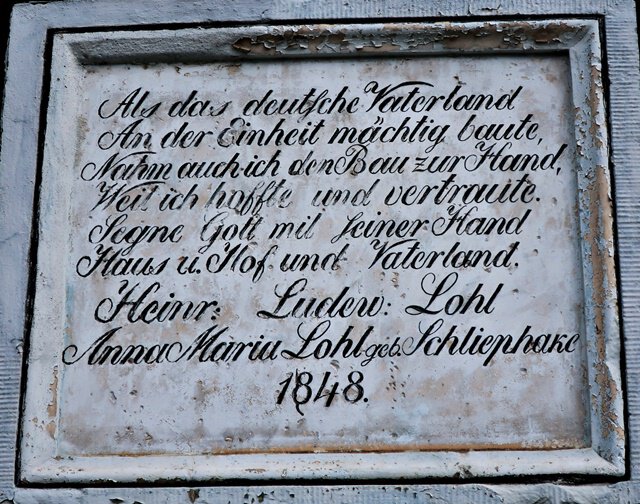 Als das deutsche Vaterland
An der Einheit mächtig baute,
Nahm auch ich den Bau zur Hand,
Weil ich haffte und vertraute.
Segne Gott mit seiner Hand
Haus u. Hof und Vaterland.
Heinr: Ludew: Lohl
Anna Maria Lohl geb. Schliephake
1848.